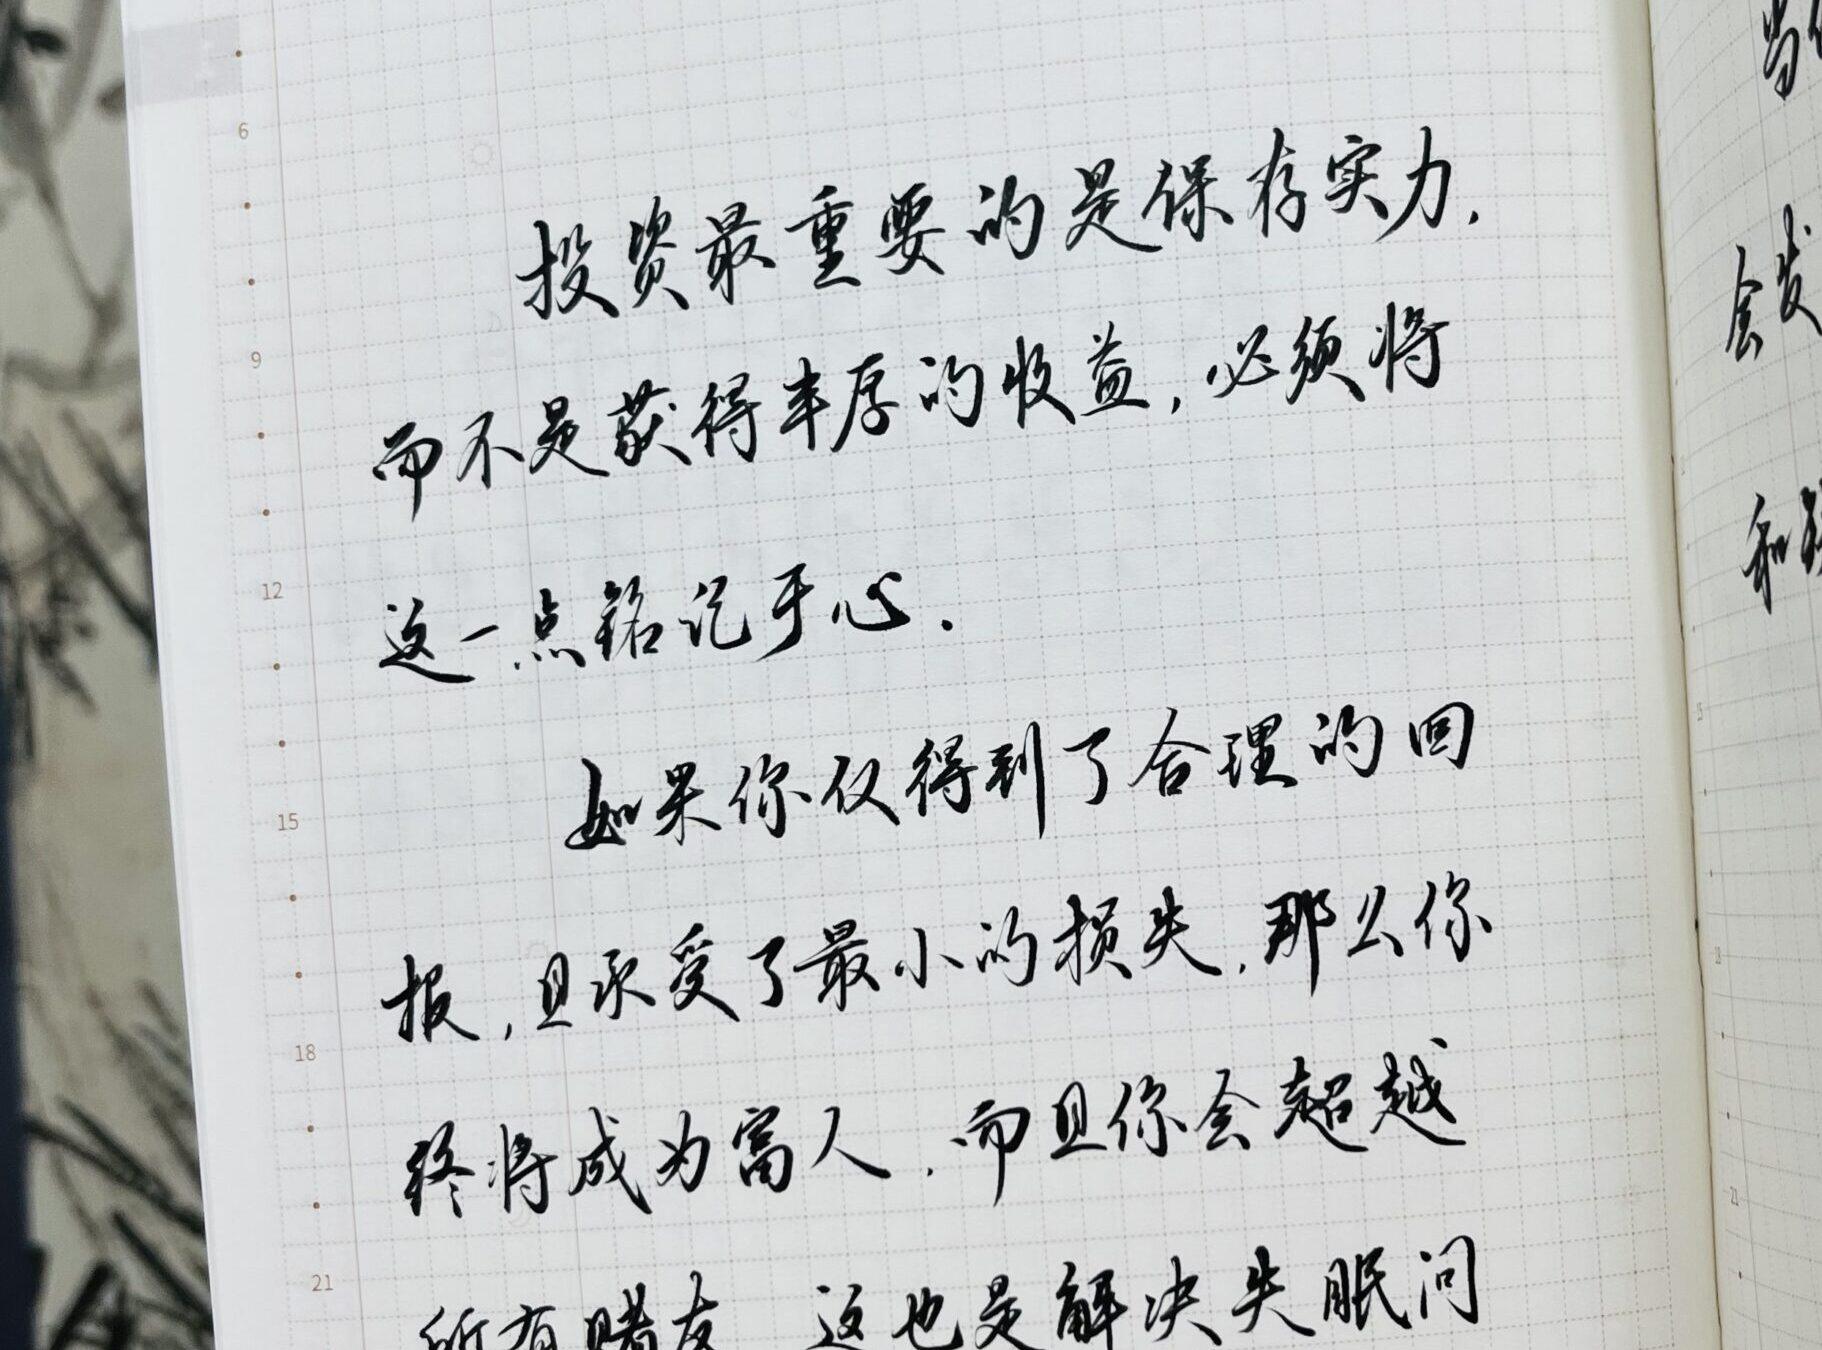 6
9
12
15
18
21
投资最重要的是保存实力,
而不是获得丰厚的收益,必须将
这一点铭记于心.
如果你仅得到了合理的回
报,且承受了最小的损失,那么你
终将成为富人,而且你会超越
所有赌友 这也是解决失眠问
会发
和
15
18
21